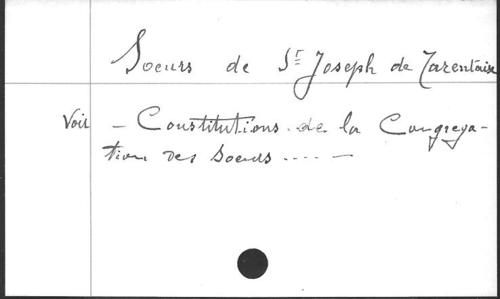 Soeurs de St Joseph de Tarentaise
Voir – Constitutions de la Congrega-
tion des Soeurs .... –